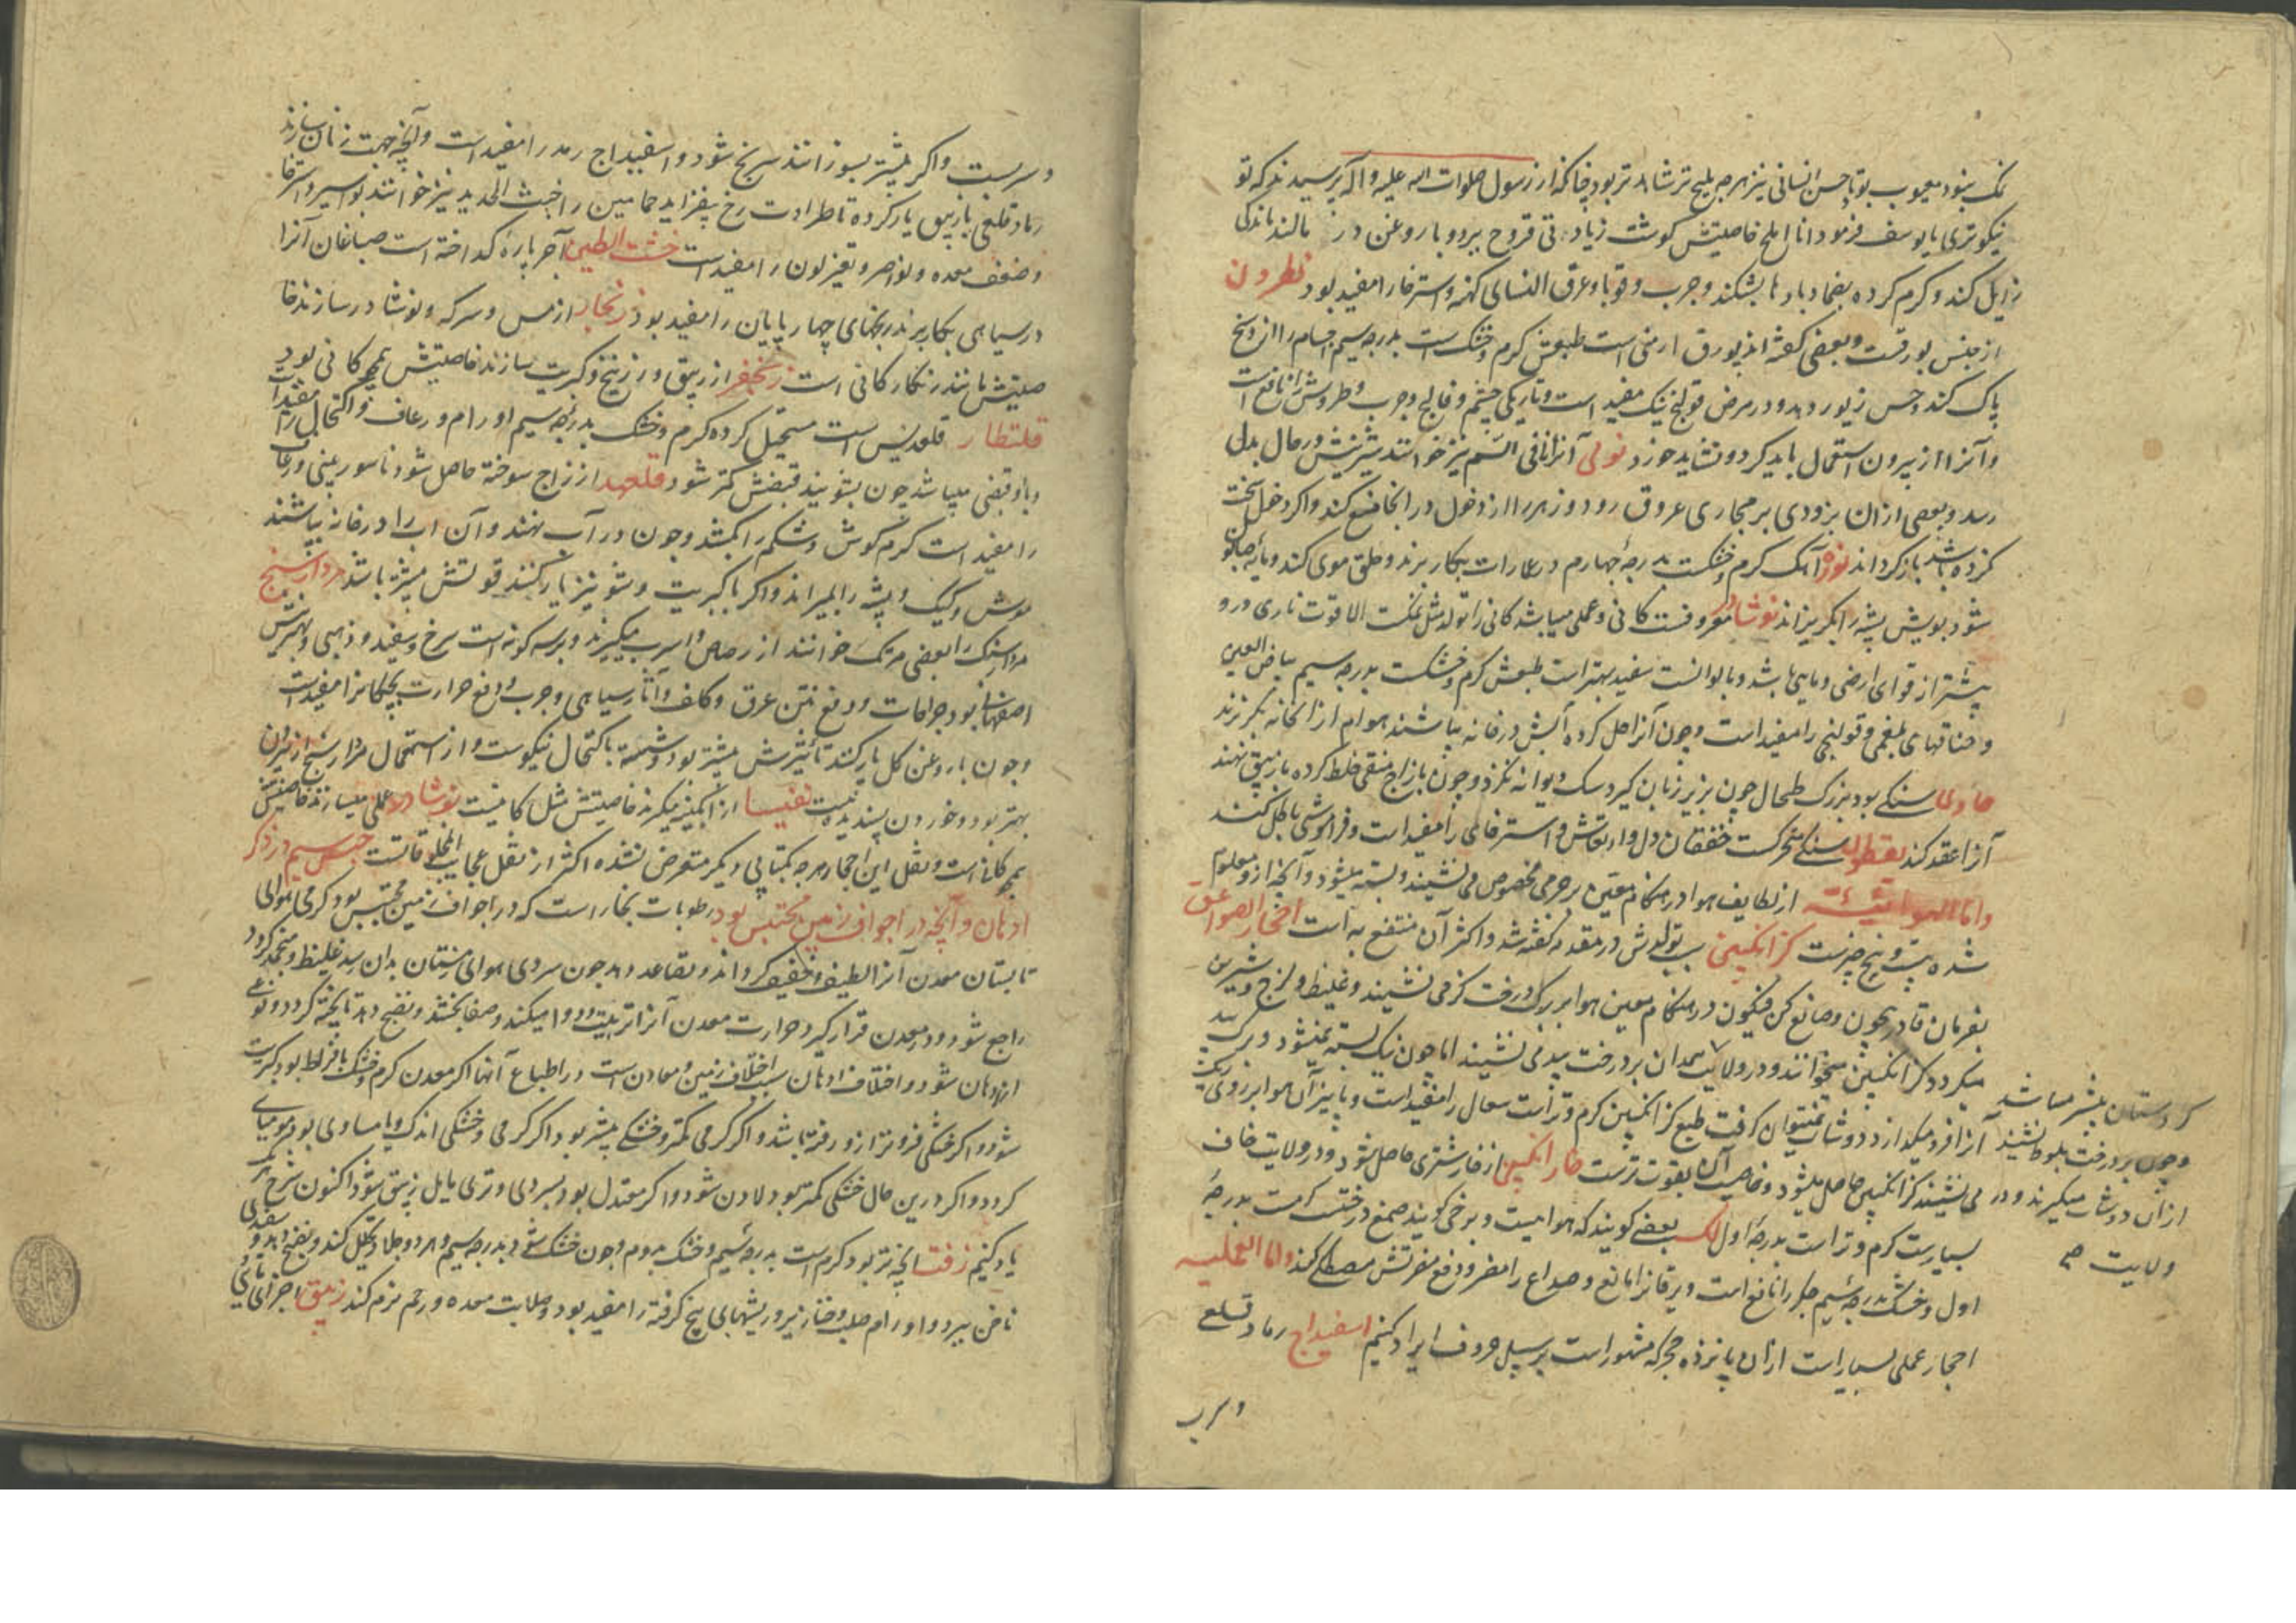 نمک نبود معیوب بود با حسن انسانی نیز هرچه ملیح تر شاه تر بود چنانکه از رسول صلوات الله علیه و اله پرسیدند که تو
نیکوتری یا یوسف فرمود انا املح خاصیتش گوشت زیادتی قروح ببرد و با روغن در مالند ماندگی
زایل کند و گرم کرده بضماد بادها بشکند و جرب و قوبا و عرق النسای کهنه و استرخا را مفید بود نطرون
از جنس بورقست و بعضی گفته اند بورق ارمنی است طبعش گرم و خشک است بدرجه سیم اجسام را از وسخ
پاک کند و حسن زیور دهد و در مرض قولنج نیک مفید است و تاریکی چشم و فالج و جرب و طروش را نافع است
و آنرا از بیرون استعمال باید کرد و نشاید خورد نولی آنرا نافی السم نیز خوانند شربتش در حال بدل
رسد و بعضی از ان بزودی بر مجاری عروق رود و زهر را از دخول در انجا منع کند و اکر دخول سخت
کرده باشد باز کرداند نوره آهک گرم و خشکست بدرجه چهارم در عمارات بکار برند و حلق موی کند و مایه صابون
شود بویش پشه را بگریزاند نوشادر معروفست کانی و عملی میباشد کانی را تولد مثل نمکست الا قوت ناری درو
بیشتر از قوای ارضی و مایی باشد و بالوانست سفید بهتر است طبعش گرم و خشکست بدرجه سیم بیاض العین
و خناقهای بلغمی و قولنجی را مفید است و چون آنرا حل کرده آبش در خانه بپاشند هوام از انخانه بگریزند
هادی سنگی بود بزرک طحال چون بزیر زبان گیرد سک دیوانه نگزد و چون با زاج منقی خلط کرده بازیبق نهند
آنرا عقد کند یقظوله سنگی متحرکست خفقان دل و ارتعاش و استرخای را مفید است و فراموشی باطل کند
واما الهوائیة از لطایف هوا در هنگام معین بر جرمی مخصوص می نشیند و بسته میشود و آنچه ازو معلوم
شده بیت و پنج چیزست گزانگبین سبب تولدش در مقدمه گفته شد و اکثر آن منتفع به است احجار الصواعق
بفرمان قادر بیچون و صانع کن فیکون در هنگام معین هوا بر برک درخت گز می نشیند و غلیظ و لزج و شیرین
میکردد گزانگبین میخوانند و در ولایت همدان بر درخت بید می نشیند اما چون نیک بسته نمیشود و برک بید
آنرا فرو میگذارد دوشاب نمیتوان گرفت طبع گزانگبین گرم و تر است سعال را مفید است و بپاییز آن هوا بر روی ریک
می نشیند گزانگبین حاصل میشود و خاصیت آن بقوت ترست خار انگبین از خار شتری حاصل شود و در ولایت خاف
بسیارست گرم و تر است بدرجه اول لک بعضی گویند که هوائیست و برخی گویند صمغ درختی است بدرجه
اول و خشک بدرجه سیم جگر را نافع است و یرقانرا مانع و صداع را مضر و دفع مضرتش مصطکی کند واما العملیه
احجار عملی بسیار است از ان پانزده حجر که مشهور است بر سبیل حروف ایراد کنیم اسفیداج رماد قلعی
کردستان بیشتر میباشد
و چون بر درخت بلوط نشیند
از ان دوشاب میگیرند و در
ولایت صح
و سرب
و سربست و اکر بیشتر بسوزانند سرنج شود و اسفیداج رمد را مفید است و آنچه جهت زنان سازند
رماد قلعی با زیبق یار کرده تا طراوت رخ بیفزاید حمامین را خبث الحدید نیز خوانند بواسیر و استرخا
و ضعف معده و بواسر و تغیر لون را مفید است خشت الطین آجر پاره گداخته است صباغان آنرا
در سیاهی بکار برند رنجهای چهارپایان را مفید بود زنجار از مس و سرکه و نوشادر سازند خا
صیتش مانند زنگار کانی است زنجفر از زیبق و زرنیخ و کبریت سازند خاصیتش همچو کانی بود
قلقطار قلقدیس است مستحیل کرده گرم و خشک بدرجه سیم اورام و رعاف و اکتحال را مفید است
و با او قبضی میباشد چون بشویند قبضش کمتر شود قلعهد از زاج سوخته حاصل شود ناسور عینی و رعاف
را مفید است کرم گوش و شکم را بکشد و چون در آب نهند و آن اب را در خانه بپاشند
موش و کیک و پشه را بمیراند و اکر با کبریت و شونیز یار کنند قوتش بیشتر باشد مرداسنج
مرداسنک را بعضی مرتک خوانند از رصاص و اسرب میگیرند و بر سه گونه است سرخ و سفید و ذهبی و بهترینش
اصفهانی بود جراحات و دفع نتن عرق و کلف و آثار سیاهی و جرب و دفع حرارت بچگانرا مفید است
و چون با روغن گل یار کنند تأثیرش بیشتر بود و شسته باکتحال نیکوست و از استعمال مردارسنج از بیرون
بهتر بود و خوردن پسندیده نیست نفیسا از ابگینه میگیرند خاصیتش مثل کانیست نوشادر عملی میسازند خاصیتش
همچو کانی است و نقل این احجار هرچه بکتابی دیگر متعرض نشده اکثر از نقل عجایب المخلوقاتست جنس سیم در ذکر
ادهان و آنچه در اجواف زمین محتبس بود رطوبات بخار است که در اجواف زمین محتبس بود گرمی هوای
تابستان معدن آنرا لطیف و خفیف گرداند و تصاعد دهد چون سردی هوای زمستان بدان رسد غلیظ و منجمد گردد
راجع شود و در معدن قرار گیرد حرارت معدن آنرا تربیت و دوا میکند و صفا بخشد و نضج دهد تا پخته گردد و نوعی
از ادهان شود و اختلاف ادهان سبب اختلاف زمین و معادن است در اطباع آنها اکر معدن گرم و خشک بافراط بود کبریت
شود و اکر خشکی فروتر ازو رفته باشد و اکر گرمی کمتر و خشکی بیشتر بود اکر گرمی و خشکی اندک و یا مساوی بود مومیای
گردد و اکر درین حال خشکی کمتر بود لادن شود و اکر معتدل بود بسردی و تری مایل زیبق شود اکنون شرح هریک
یاد کنیم زفت آنچه تر بود گرم است بدرجه سیم و خشک بدوم و چون خشک شود بدرجه سیم و هر دو جلا و تحلیل کند و نضج دهد و سفیدی
ناخن ببرد و اورام صلب و خنازیر و ریشهای پنج گرفته را مفید بود و صلابت معده و رحم نرم کند زیبق اجزای مائی